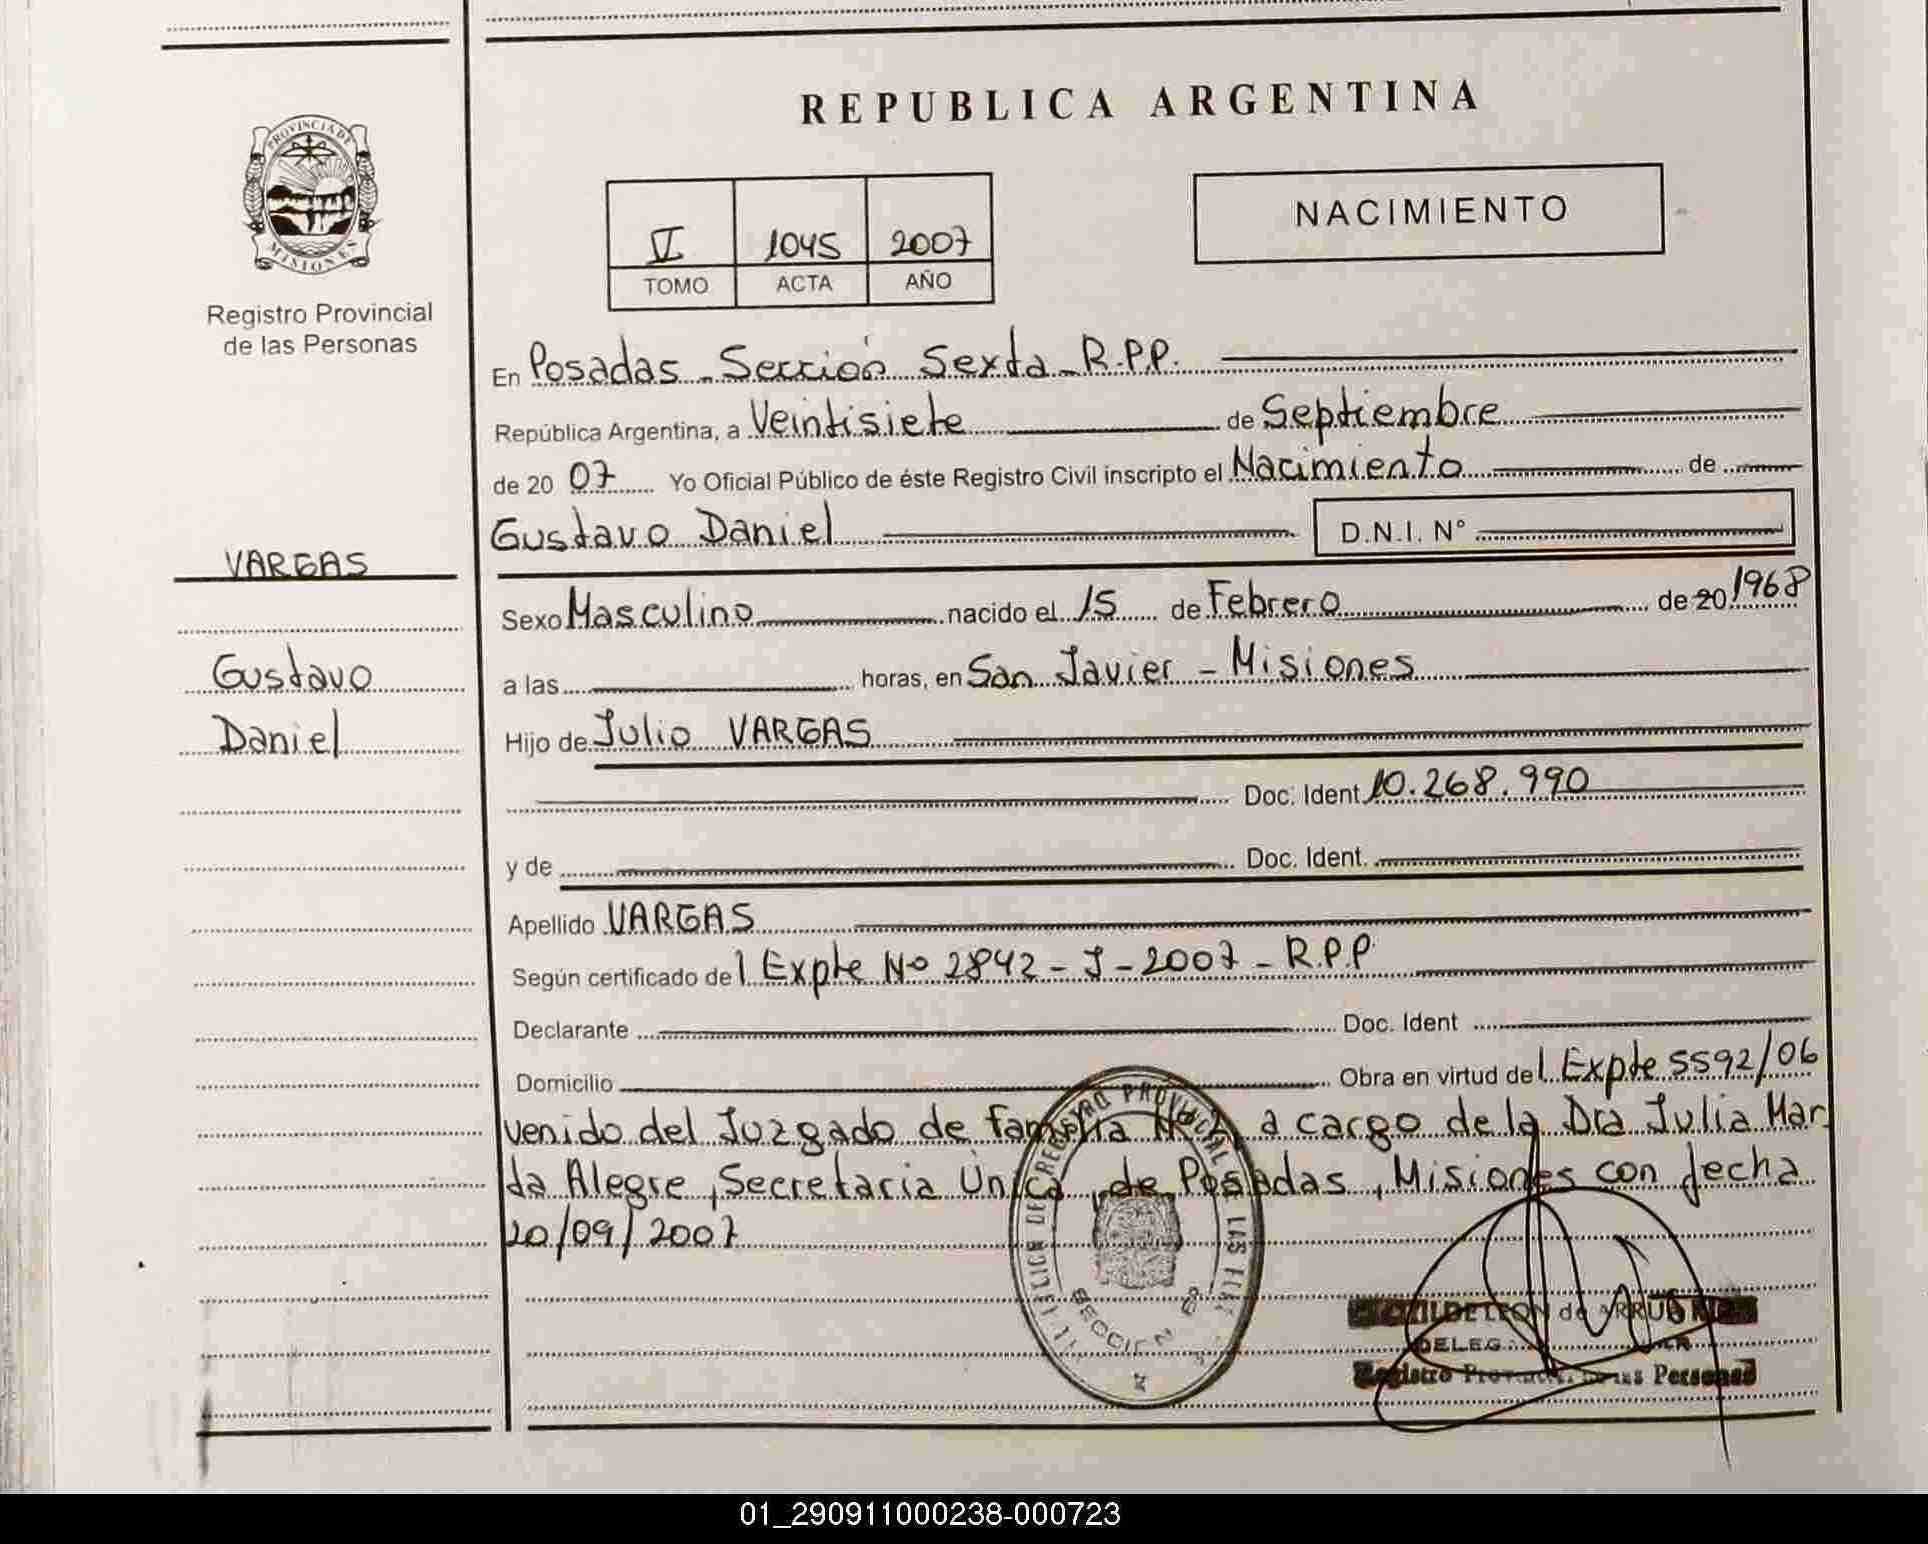 REPUBLICA ARGENTINA
PROVINCIA DE
MISIONES
Registro Provincial
de las Personas
VI 1045 2007
TOMO ACTA AÑO
NACIMIENTO
En Posadas - Sección Sexta - R.P.P.
República Argentina, a Veintisiete de Septiembre
de 20 07 Yo Oficial Público de éste Registro Civil inscripto el Nacimiento de
Gustavo Daniel D.N.I. N°
VARGAS
Gustavo
Daniel
Sexo Masculino nacido el 15 de Febrero de 20 1968
a las horas, en San Javier - Misiones
Hijo de Julio VARGAS
Doc. Ident 10.268.990
y de Doc. Ident.
Apellido VARGAS
Según certificado de l Expte Nº 2842 - J - 2007 - R.P.P
Declarante Doc. Ident
Domicilio Obra en virtud de l Expte 5592/06
venido del Juzgado de familia Nº 2, a cargo de la Dra Julia Mar
ta Alegre, Secretaria Unica, de Posadas, Misiones con fecha
20/09/2007
REGISTRO PROVINCIAL
SECCION
de ARRUA
Registro Personas
01_290911000238-000723